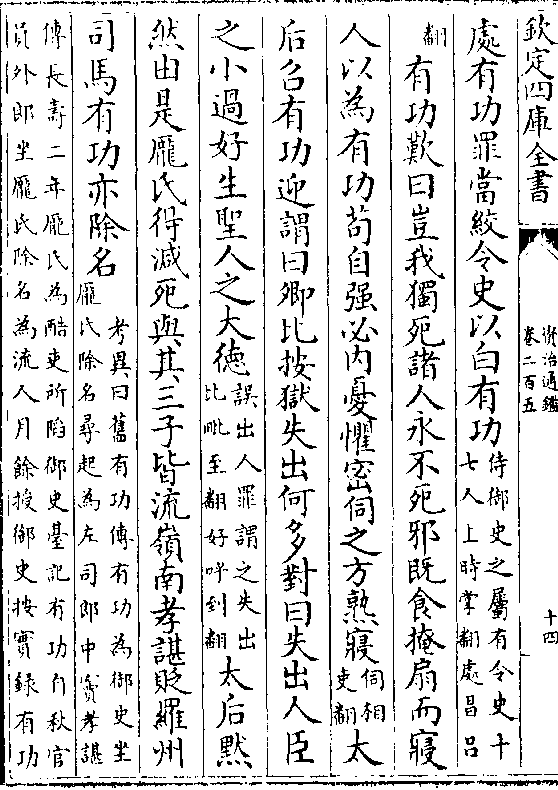 欽定四庫全書
資治通鑑
卷二百五
十四
處有功罪當絞令史以白有功
侍御史之屬有令史十
七人上時掌翻處昌呂
翻
有功歎曰豈我獨死諸人永不死邪既食掩扇而寢
人以為有功苟自强必內憂懼密伺之方熟寢
伺相
吏翻
太
后召有功迎謂曰卿比按獄失出何多對曰失出人臣
之小過好生聖人之大德
誤出人罪謂之失出
比毗至翻好呼到翻
太后默
然由是龎氏得減死與其三子皆流嶺南孝諶貶羅州
司馬有功亦除名
考異曰舊有功傳有功為御史坐
龎氏除名尋起為左司郎中竇孝諶
傳長壽二年龎氏為酷吏所陷御史臺記有功自秋官
員外郎坐龎氏除名為流人月餘授御史按實錄有功